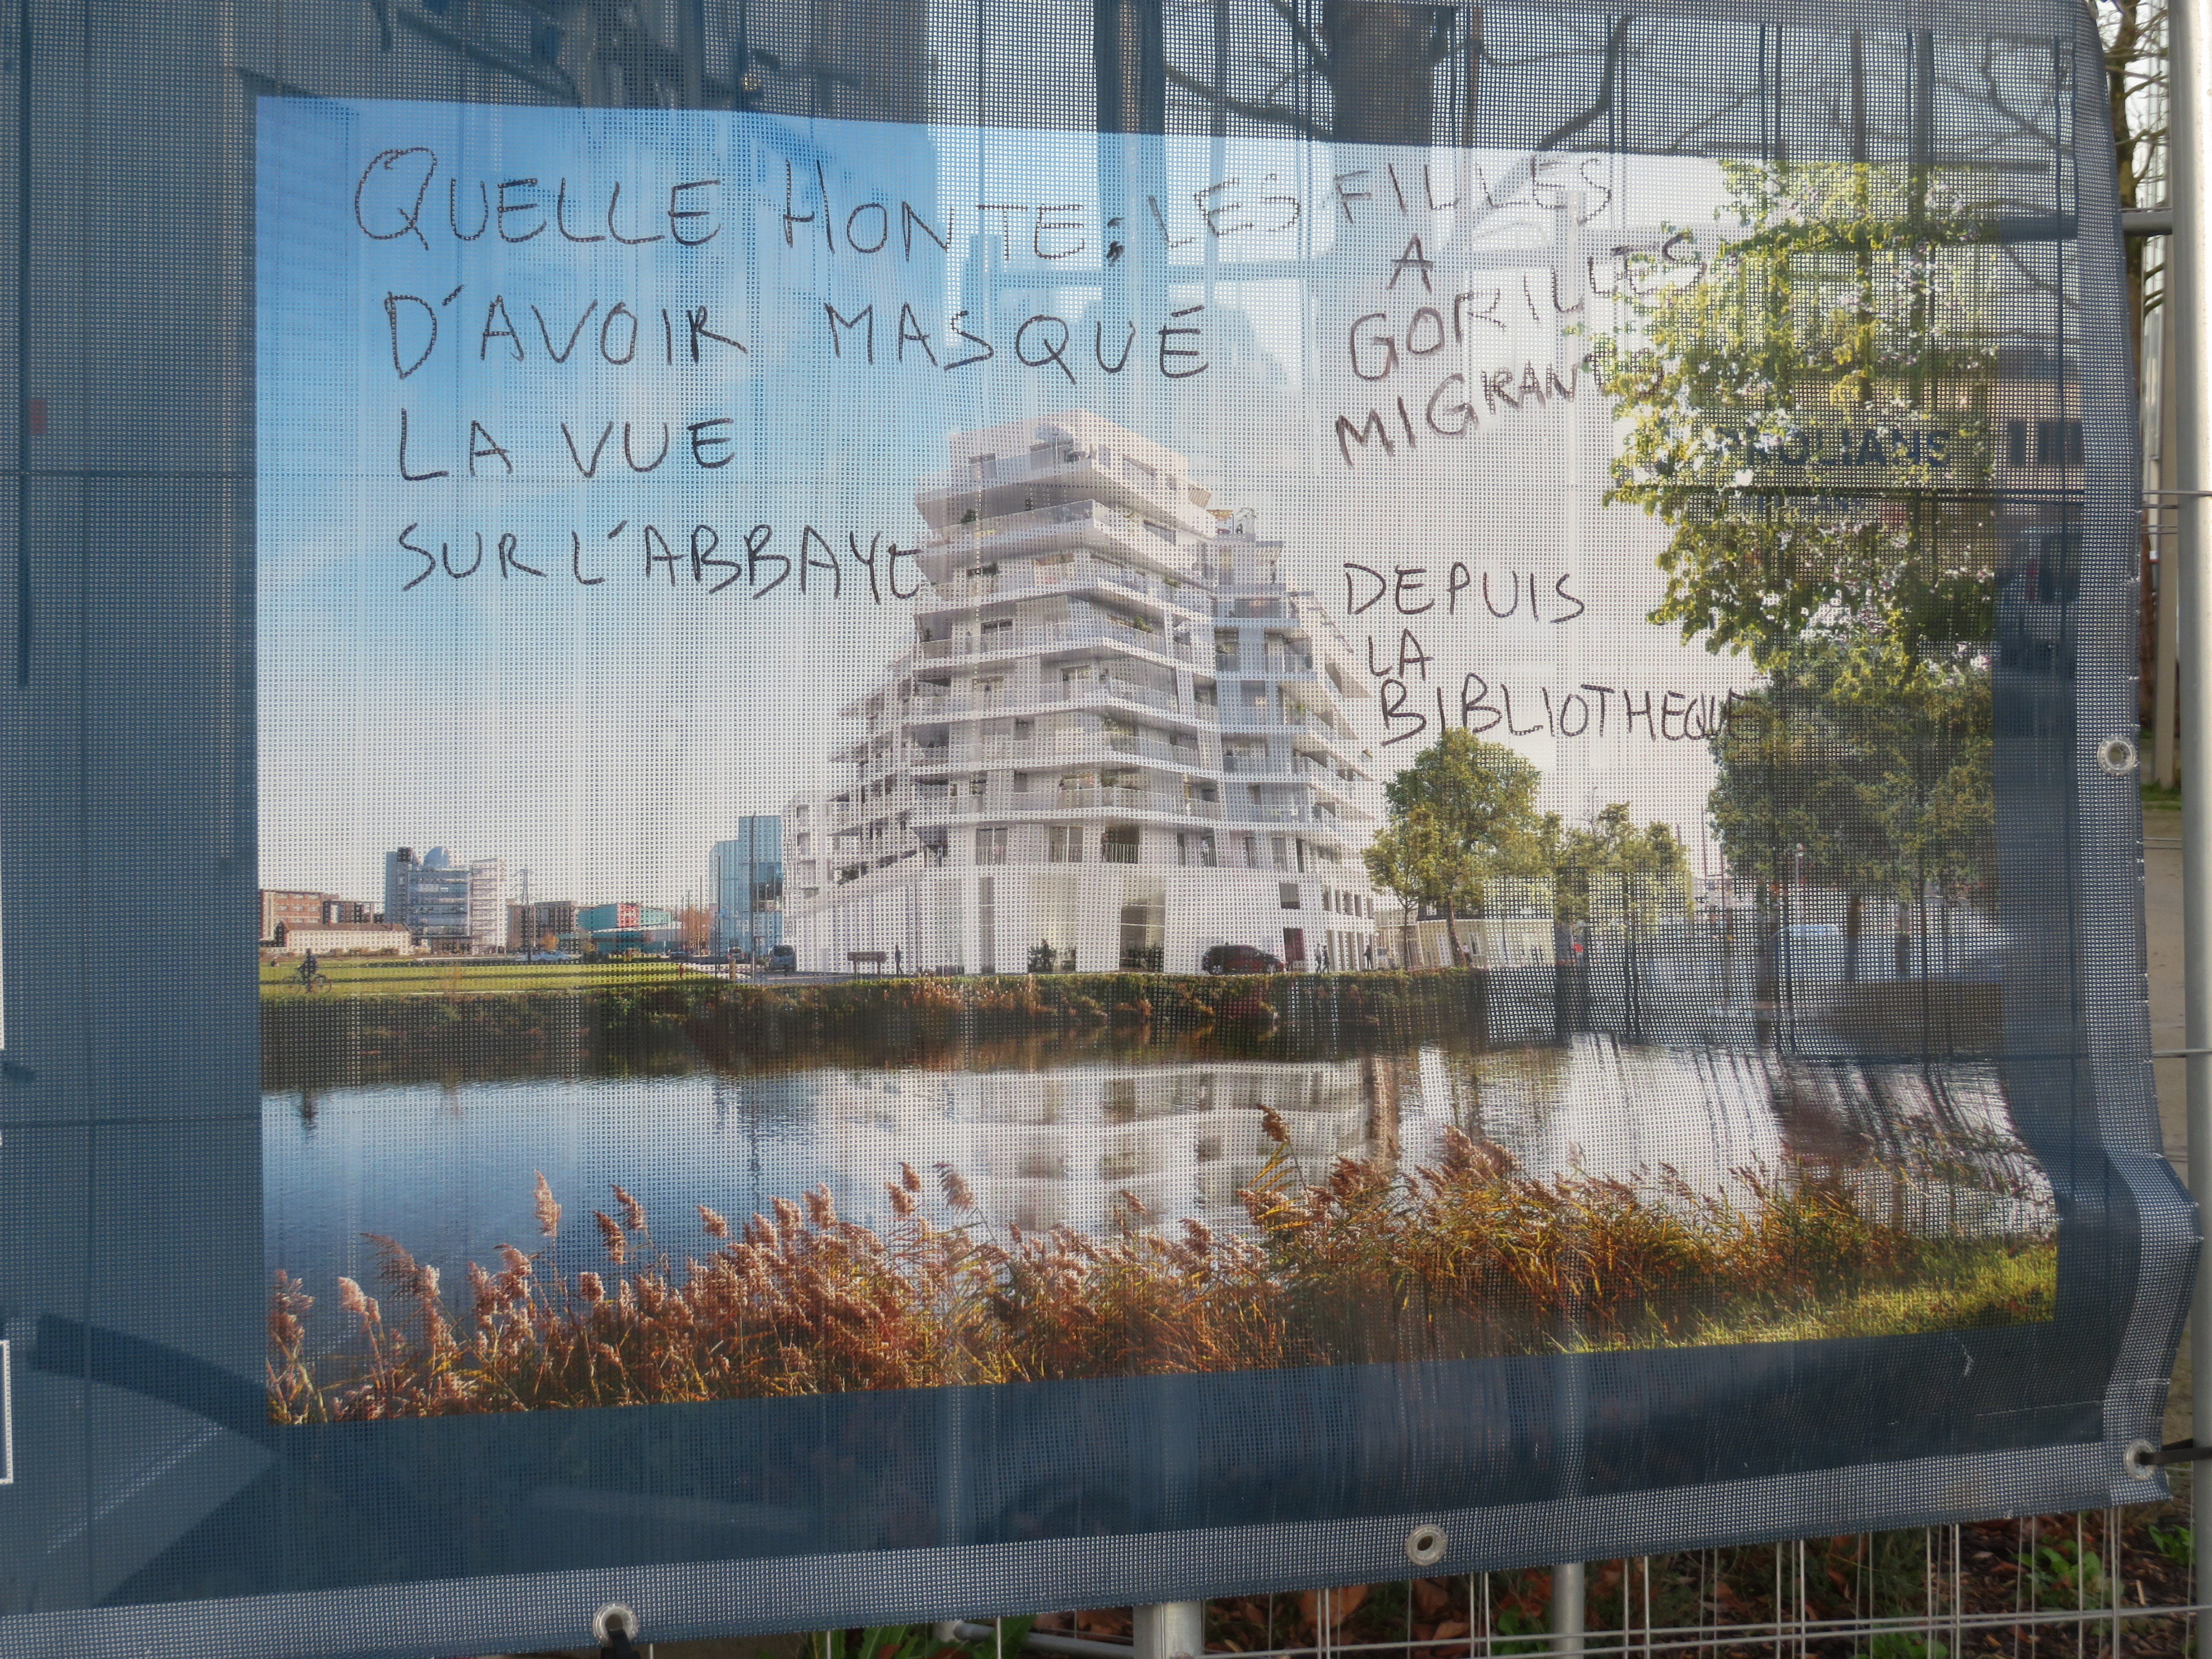 QUELLE HONTE; LES FILLES
A
GORILLES
MIGRANTS
D'AVOIR MASQUÉ
LA VUE
SUR L'ABBAYE
DEPUIS
LA
BIBLIOTHEQUE